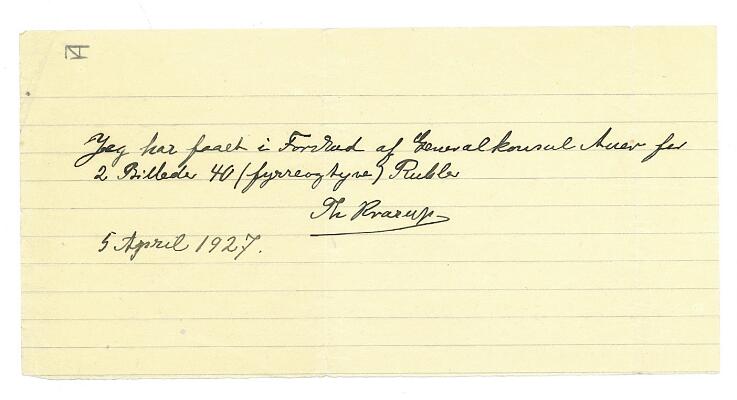 Jeg har faaet i Forskud af Generalkonsul Auer for
2 Billeder 40 (fyrreogtyve) Rubler
Th Krarup
5 April 1927.